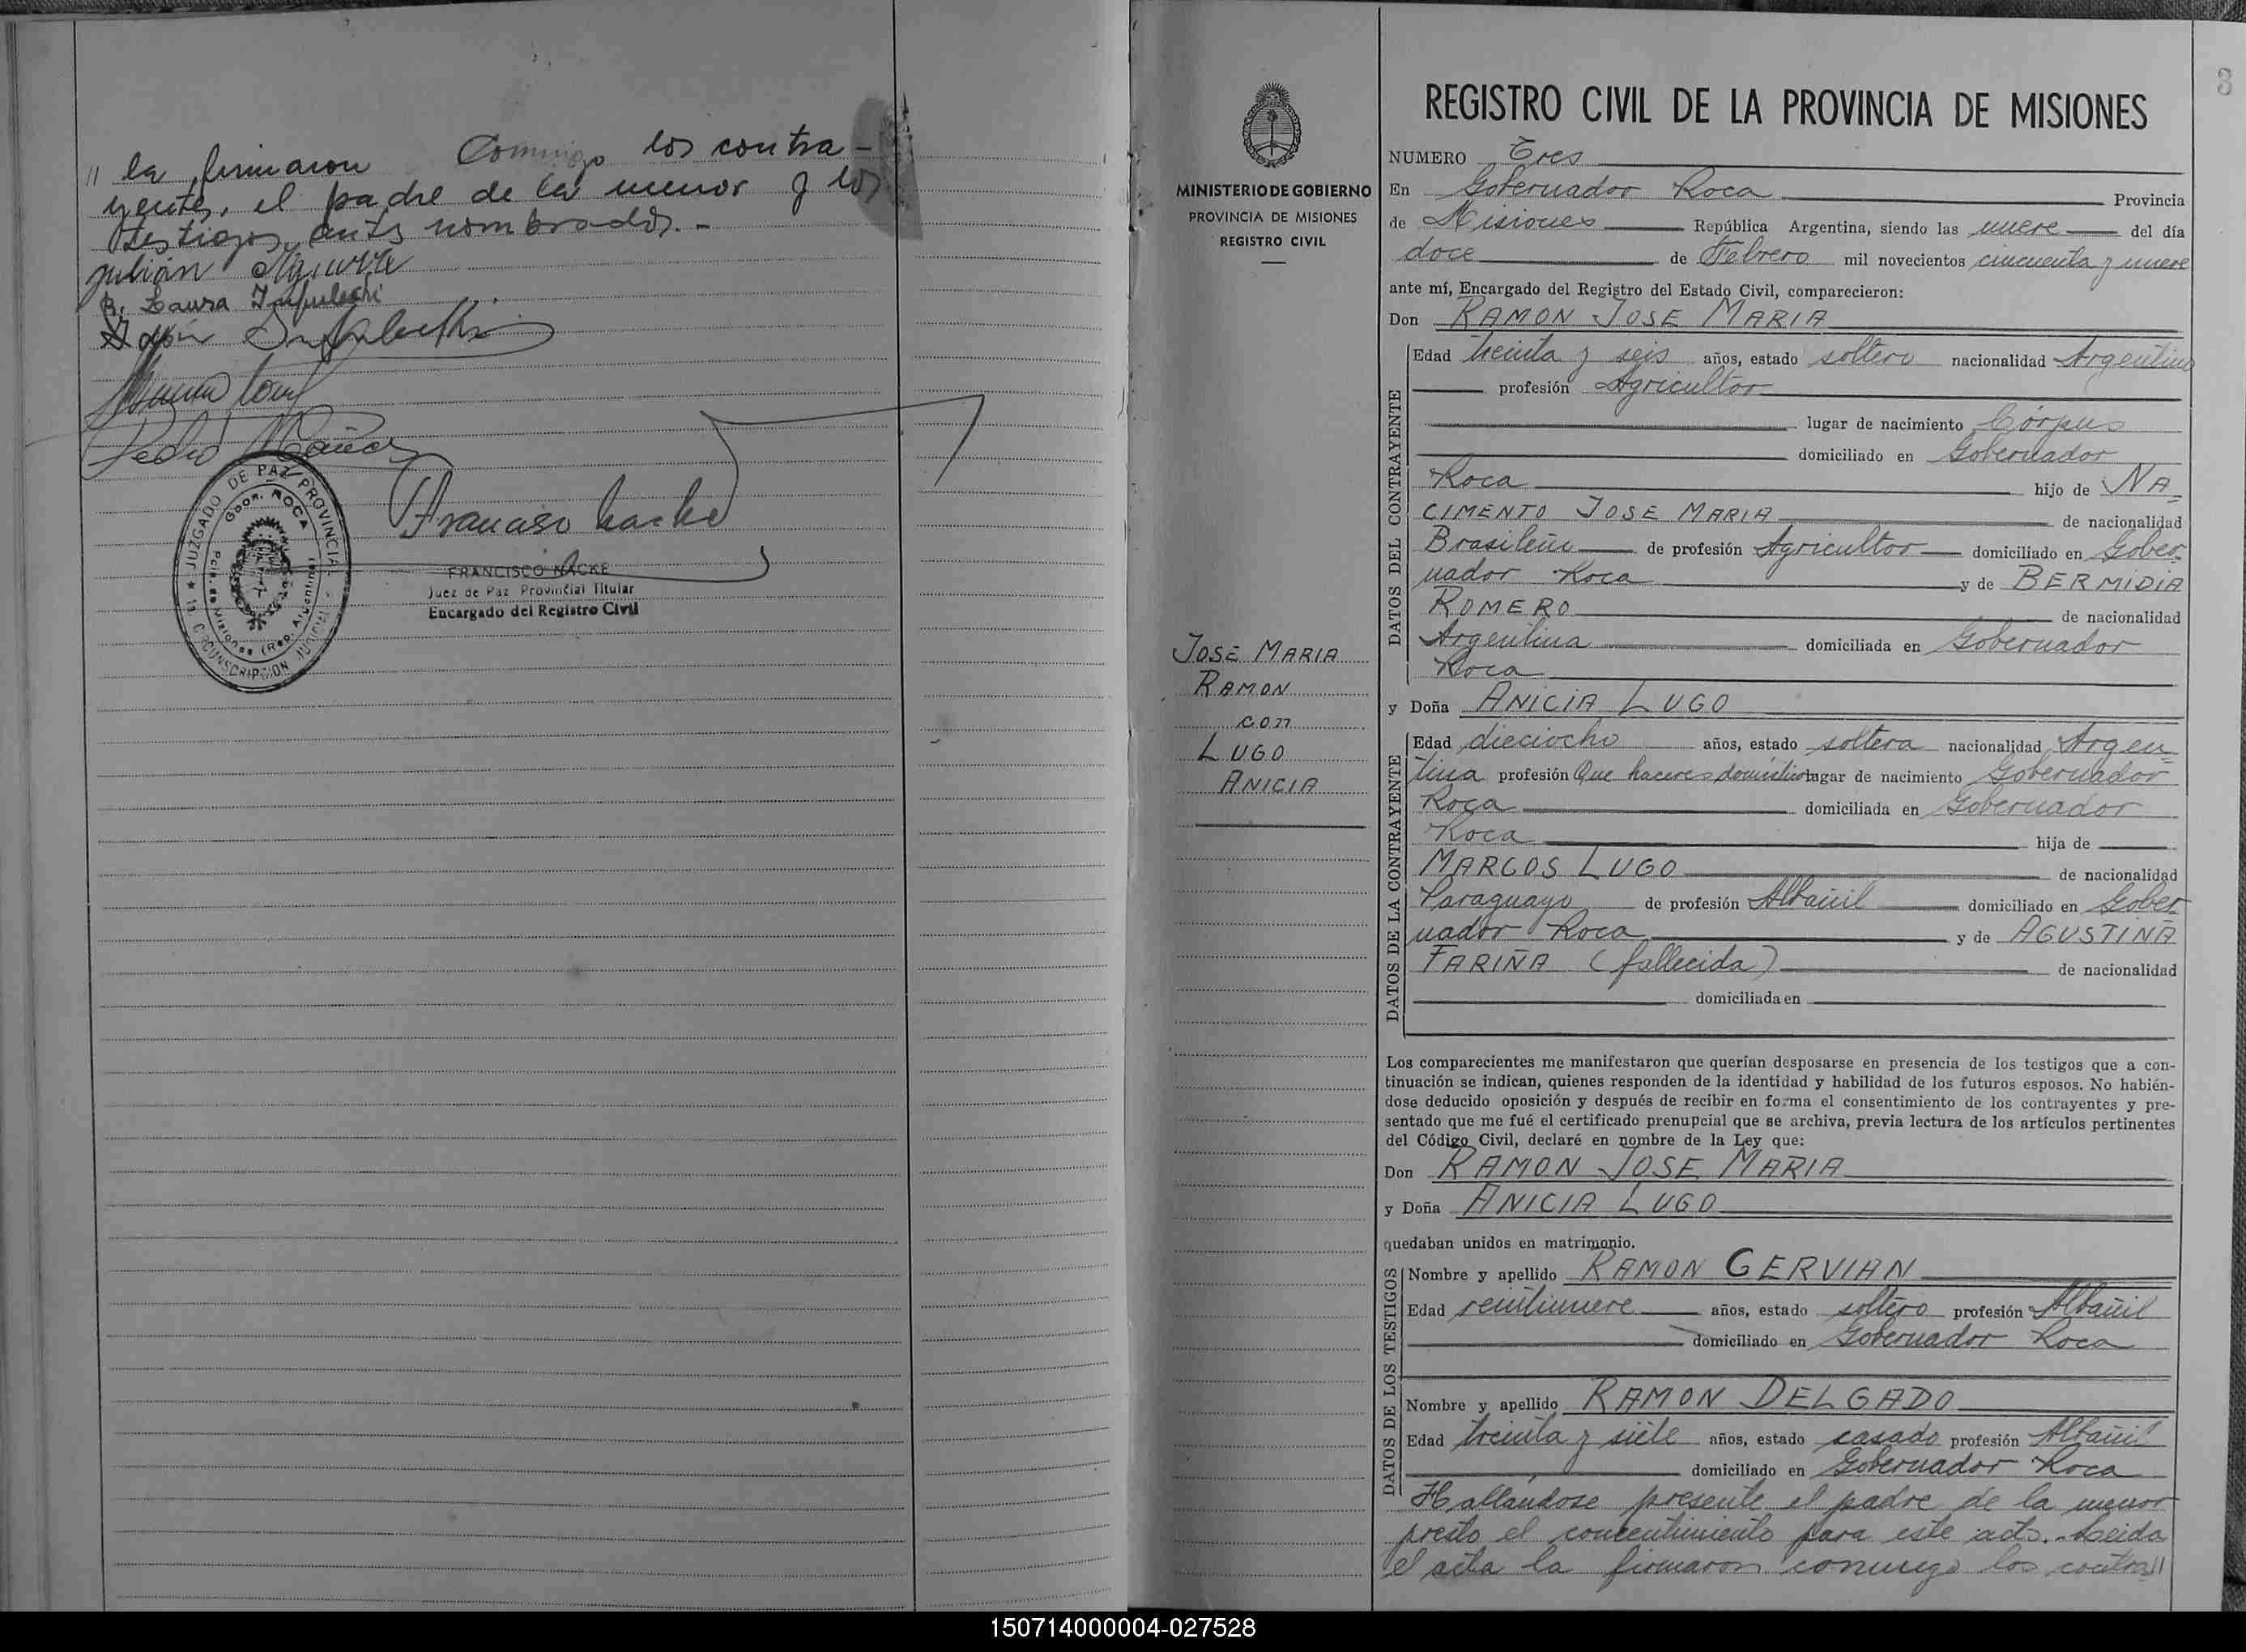 // la firmaron Conmigo los contra-
yentes, el padre de la menor y los
testigos ants nombrados.-
R. Laura
Pedro
JUZGADO DE PAZ PROVINCIAL
Gdor. ROCA
Pcia. de Misiones (Rep. Argentina)
CIRCUNSCRIPCION JUDICIAL
FRANCISCO NACKE
Juez de Paz Provincial Titular
Encargado del Registro Civil
3
MINISTERIO DE GOBIERNO
PROVINCIA DE MISIONES
REGISTRO CIVIL
JOSE MARIA
RAMON
con
LUGO
ANICIA
REGISTRO CIVIL DE LA PROVINCIA DE MISIONES
NUMERO Tres
En Gobernador Roca Provincia
de Misiones República Argentina, siendo las nueve del día
doce de Febrero mil novecientos cincuenta y nueve
ante mí, Encargado del Registro del Estado Civil, comparecieron:
Don RAMON JOSE MARIA
DATOS DEL CONTRAYENTE
Edad treinta y seis años, estado soltero nacionalidad Argentino
profesión Agricultor
lugar de nacimiento Córpus
domiciliado en Gobernador
Roca hijo de NA-
CIMENTO JOSE MARIA de nacionalidad
Brasileño de profesión Agricultor domiciliado en Gober-
nador Roca y de BERMIDIA
ROMERO de nacionalidad
Argentina domiciliada en Gobernador
Roca
y Doña ANICIA LUGO
DATOS DE LA CONTRAYENTE
Edad dieciocho años, estado soltera nacionalidad Argen-
tina profesión Que haceres domésticos lugar de nacimiento Gobernador
Roca domiciliada en Gobernador
Roca hija de
MARCOS LUGO de nacionalidad
Paraguayo de profesión Albañil domiciliado en Gober-
nador Roca y de AGUSTINA
FARIÑA (fallecida) de nacionalidad
domiciliada en
Los comparecientes me manifestaron que querían desposarse en presencia de los testigos que a con-
tinuación se indican, quienes responden de la identidad y habilidad de los futuros esposos. No habién-
dose deducido oposición y después de recibir en forma el consentimiento de los contrayentes y pre-
sentado que me fué el certificado prenupcial que se archiva, previa lectura de los artículos pertinentes
del Código Civil, declaré en nombre de la Ley que:
Don RAMON JOSE MARIA
y Doña ANICIA LUGO
quedaban unidos en matrimonio.
DATOS DE LOS TESTIGOS
Nombre y apellido RAMON GERVIAN
Edad veintinueve años, estado soltero profesión Albañil
domiciliado en Gobernador Roca
Nombre y apellido RAMON DELGADO
Edad treinta y siete años, estado casado profesión Albañil
domiciliado en Gobernador Roca
Hallandose presente el padre de la menor
presto el concentimiento para este acto. Leida
el acta la firmaron conmigo los contra//
150714000004-027528